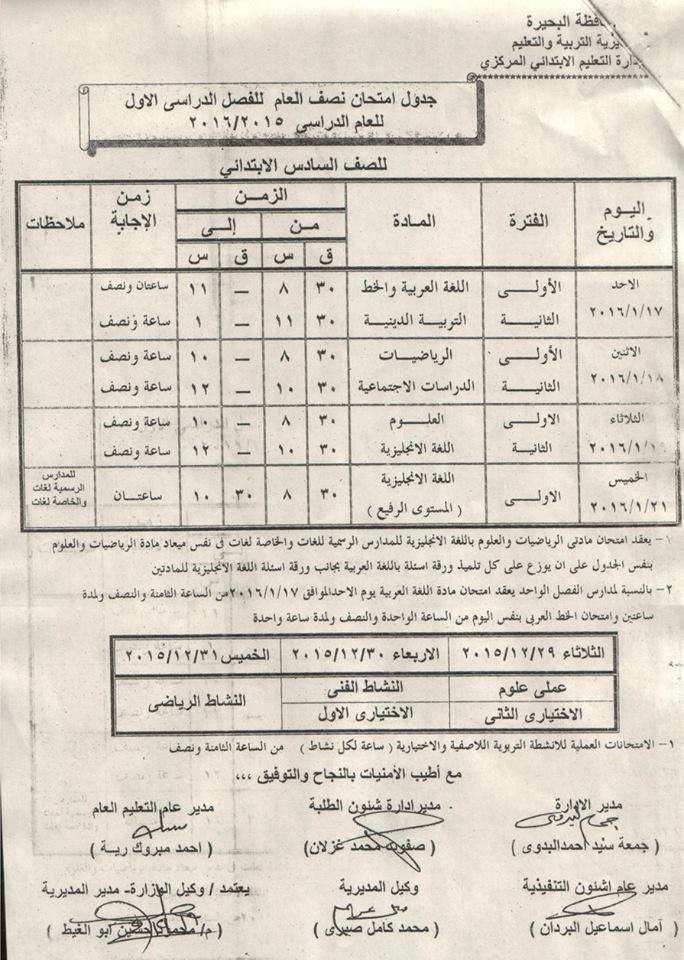 ـافظة البحيرة
ـيرية التربية والتعليم
ـدارة التعليم الابتدائي المركزي
جدول امتحان نصف العام للفصل الدراسى الاول
للعام الدراسى ٢٠١٦/٢٠١٥
للصف السادس الابتدائي
اليوم والتاريخ الفترة المادة الزمن زمن الإجابة ملاحظات
من إلى
ق س ق س
الاحد الأولى اللغة العربية والخط ٣٠ ٨ — ١١ ساعتان ونصف
٢٠١٦/١/١٧ الثانية التربية الدينية ٣٠ ١١ — ١ ساعة ونصف
الاثنين الأولى الرياضيات ٣٠ ٨ — ١٠ ساعة ونصف
٢٠١٦/١/١٨ الثانية الدراسات الاجتماعية ٣٠ ١٠ — ١٢ ساعة ونصف
الثلاثاء الاولى العلوم ٣٠ ٨ — ١٠ ساعة ونصف
٢٠١٦/١/١٩ الثانية اللغة الانجليزية ٣٠ ١٠ — ١٢ ساعة ونصف
الخميس ٢٠١٦/١/٢١ الاولى اللغة الانجليزية (المستوى الرفيع) ٣٠ ٨ ٣٠ ١٠ ساعتان للمدارس الرسمية لغات والخاصة لغات
١- يعقد امتحان مادتى الرياضيات والعلوم باللغة الانجليزية للمدارس الرسمية للغات والخاصة لغات فى نفس ميعاد مادة الرياضيات والعلوم
بنفس الجدول على ان يوزع على كل تلميذ ورقة اسئلة باللغة العربية بجانب ورقة اسئلة اللغة الانجليزية للمادتين
٢- بالنسبة لمدارس الفصل الواحد يعقد امتحان مادة اللغة العربية يوم الاحدالموافق ٢٠١٦/١/١٧من الساعة الثامنة والنصف ولمدة
ساعتين وامتحان الخط العربى بنفس اليوم من الساعة الواحدة والنصف ولمدة ساعة واحدة
الثلاثاء ٢٠١٥/١٢/٢٩ الاربعاء ٢٠١٥/١٢/٣٠ الخميس ٢٠١٥/١٢/٣١
عملى علوم النشاط الفنى النشاط الرياضى
الاختيارى الثانى الاختيارى الاول
١- الامتحانات العملية للانشطة التربوية اللاصفية والاختيارية ( ساعة لكل نشاط ) من الساعة الثامنة ونصف
مع أطيب الأمنيات بالنجاح والتوفيق ،،،
مدير الادارة مدير ادارة شئون الطلبة مدير عام التعليم العام
( جمعة سيد احمدالبدوى ) ( صفوت محمد غزلان) ( احمد مبروك رية )
مدير عام اشئون التنفيذية وكيل المديرية يعتمد / وكيل الوزارة- مدير المديرية
( آمال اسماعيل البردان ) ( محمد كامل صبرى ) ( م/ محمد حسين ابو الغيط )